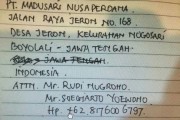 PT. MADUSARI NUSA PERDANA.
JALAN RAYA JERON NO. 168.
DESA JERON, KELURAHAN NOGOSARI
BOYOLALI - JAWA TENGAH
JAWA TENGAH.
INDONESIA
ATTN. MR. RUDI NUGROHO.
MR. SUGIHARTO YUWONO
HP. +62 817600 6797.